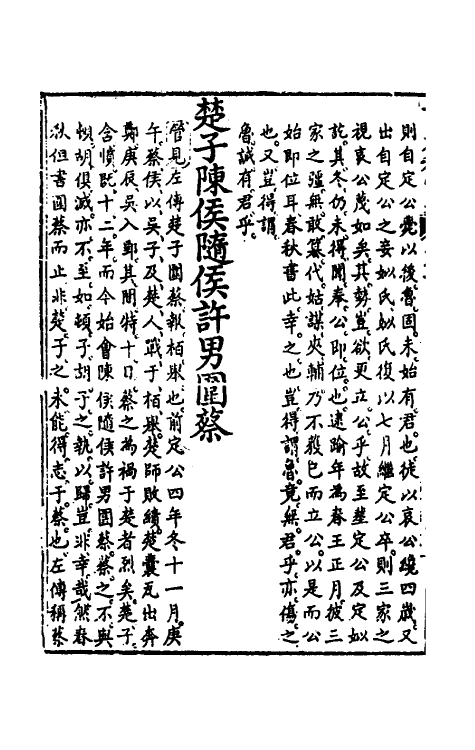 則自定公薨以後魯國未始有君也徒以哀公纔四歲又
出自定公之妾姒氏姒氏復以七月繼定公卒則三家之
視哀公茂如矣其勢豈欲更立公乎故至塟定公及定姒
訖其冬仍未得聞奉公即位也逮踰年為春王正月彼三
家之彊無敢簒代姑謀夾輔乃不獲已而立公以是而公
始即位耳春秋書此幸之也豈得謂魯竟無君乎亦傷之
也又豈得謂
魯誠有君乎
楚子陳侯隨侯許男圍蔡
管見左傳楚子圍蔡報栢舉也前定公四年冬十一月庚
午蔡侯以吳子及楚人戰于栢舉楚師敗績楚囊瓦出奔
鄭庚辰吳入郢其間特十日蔡之為禍于楚者烈矣楚子
含憤既十二年而今始會陳侯隨侯許男圍蔡蔡之不與
頓胡俱滅亦不至如頓子胡子之執以歸豈非幸哉然春
秋但書圍蔡而止非楚子之未能得志于蔡也左傳稱蔡